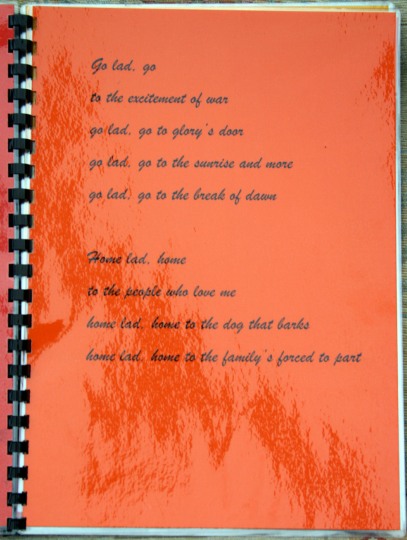 Go lad, go
to the excitement of war
go lad, go to glory's door
go lad, go to the sunrise and more
go lad, go to the break of dawn
Home lad, home
to the people who love me
home lad, home to the dog that barks
home lad, home to the family's forced to part